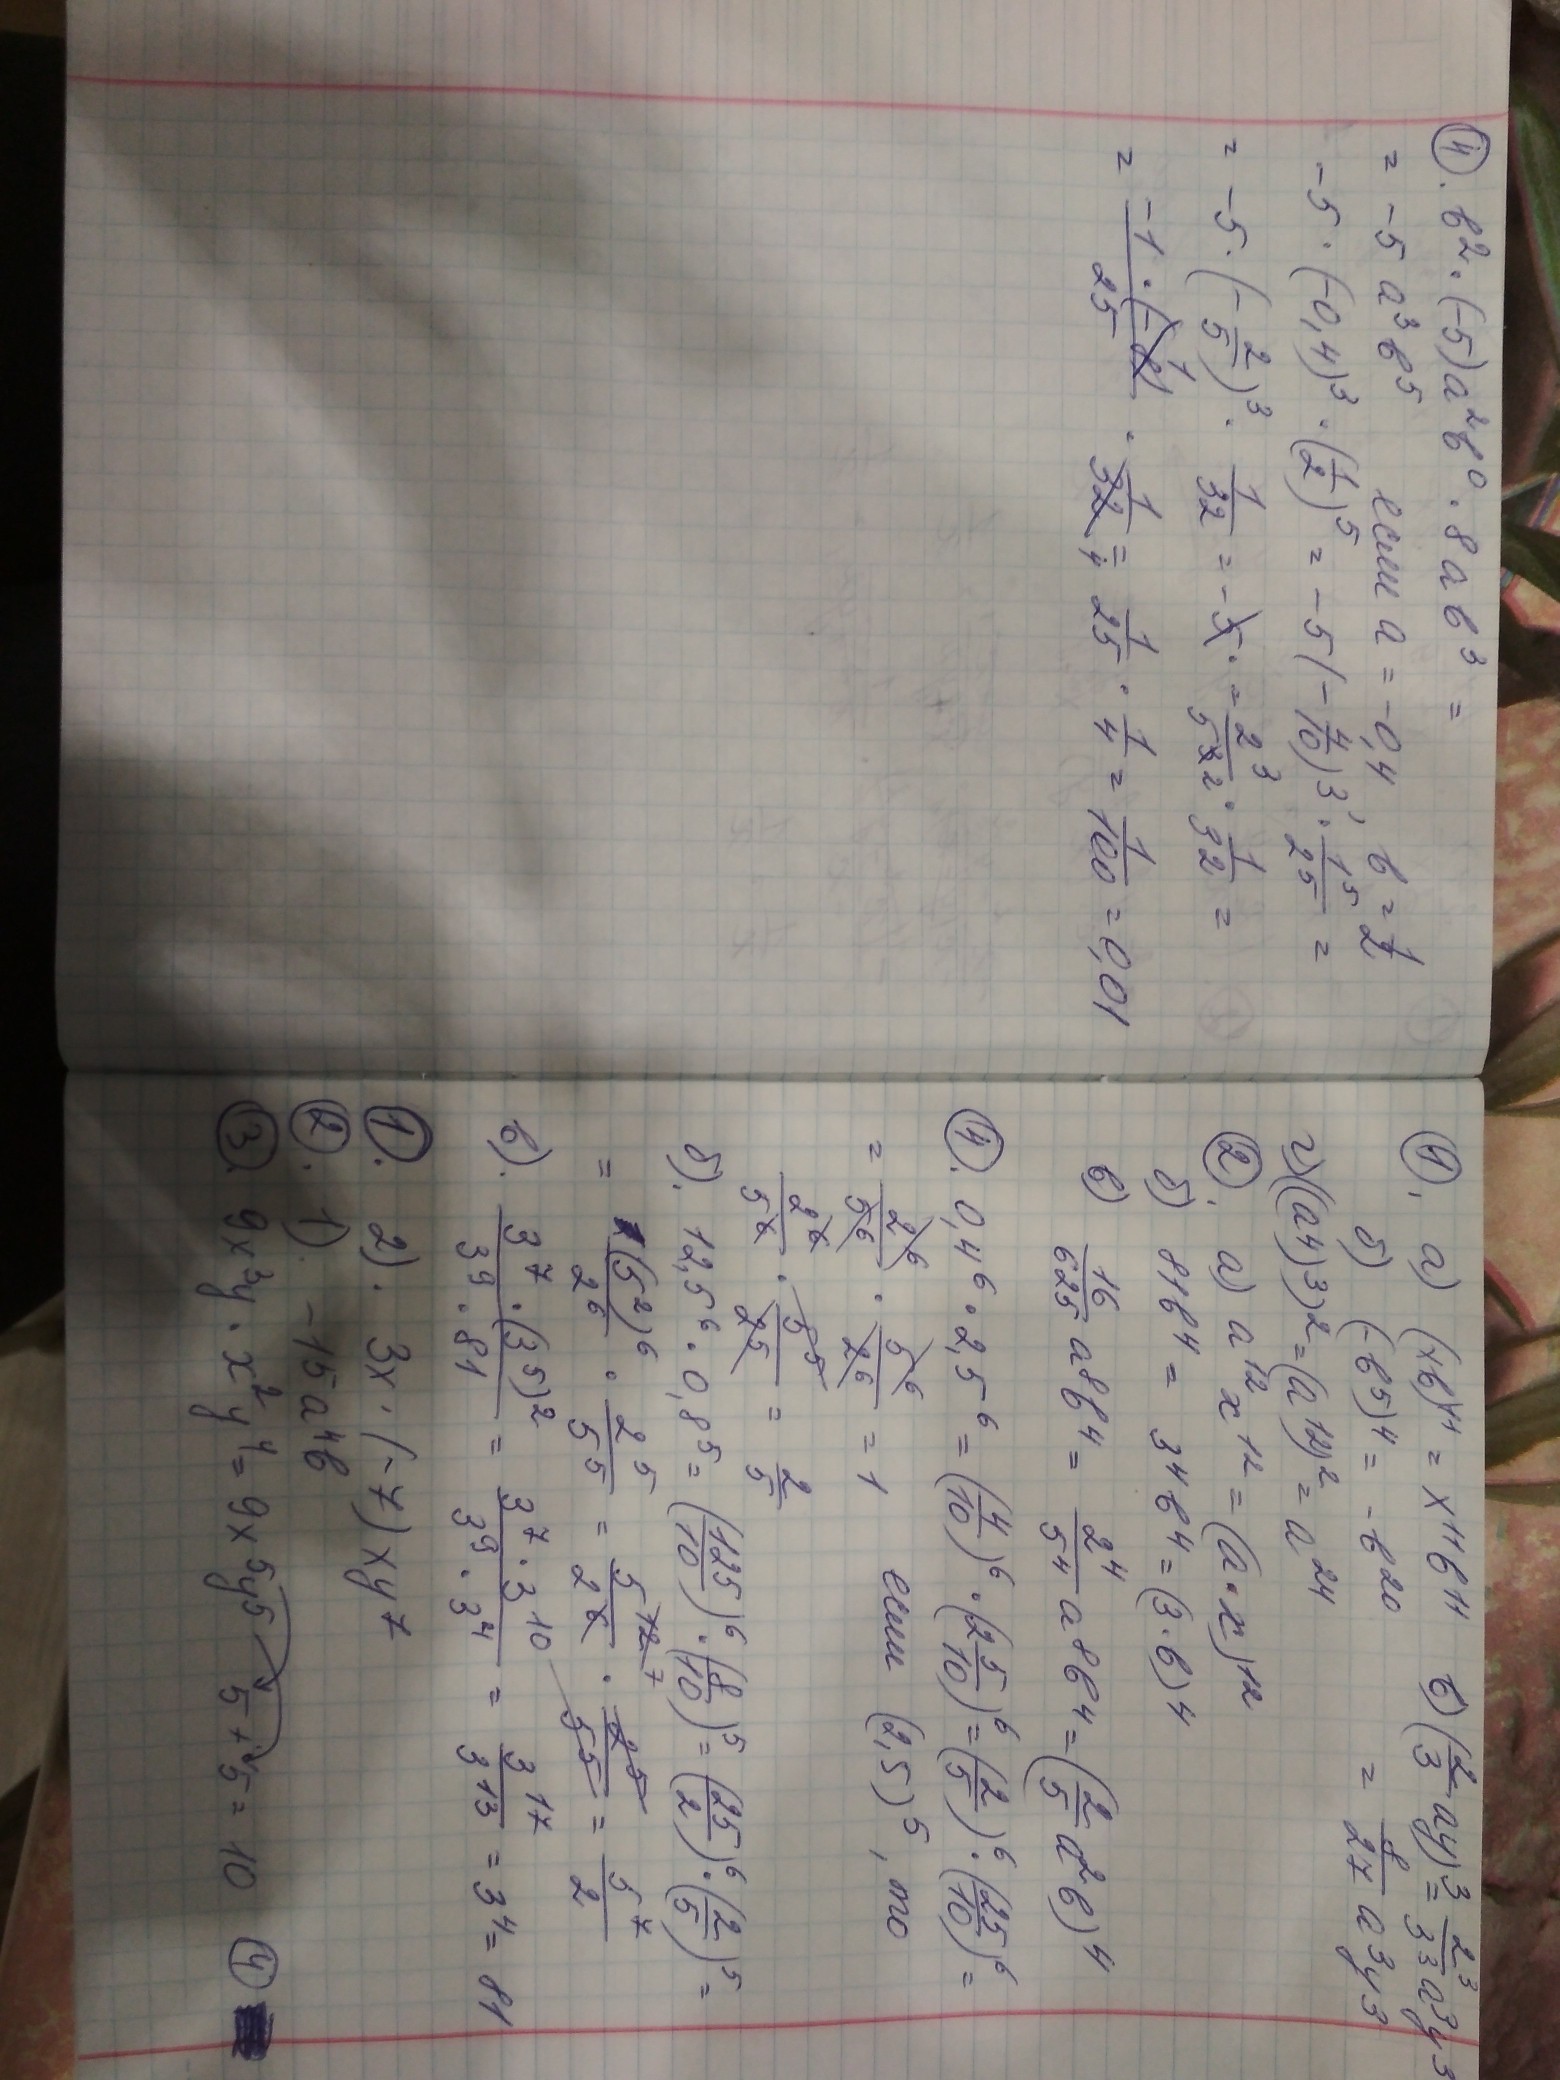 ④. в²·(-5)a²в⁰·8aв³=
= -5a³в⁵ если a = -0,4, в = 1/2
-5·(-0,4)³·(1/2)⁵ = -5(-4/10)³·1⁵/2⁵ =
= -5·(-2/5)³·1/32 = -5·-2³/5³²·1/32 =
= -1·(-8)¹/25·1/32₄ = 1/25·1/4 = 1/100 = 0,01
①. а) (xв)¹¹ = x¹¹в¹¹ в) (2/3 ay)³ = 2³/3³ a³y³
б) (-в⁵)⁴ = -в²⁰ = 8/27 a³y³
г) ((a⁴)³)² = (a¹²)² = a²⁴
②. а) a¹²x¹² = (a·x)¹²
б) 81в⁴ = 3⁴в⁴ = (3·в)⁴
в) 16/625 a⁸в⁴ = 2⁴/5⁴ a⁸в⁴ = (2/5 a²в)⁴
④. 0,4⁶·2,5⁶ = (4/10)⁶·(25/10)⁶ = (2/5)⁶·(25/10)⁶ =
= 2⁶/5⁶·5⁶/2⁶ = 1 если (2,5)⁵, то
2⁶/5⁶·5⁵/2⁵ = 2/5
б). 12,5⁶·0,8⁵ = (125/10)⁶·(8/10)⁵ = (25/2)⁶·(2/5)⁵ =
= (5²)⁶/2⁶·2⁵/5⁵ = 5¹²⁷/2⁶·2⁵/5⁵ = 5⁷/2
в). 3⁷·(3⁵)²/3⁹·81 = 3⁷·3¹⁰/3⁹·3⁴ = 3¹⁷/3¹³ = 3⁴ = 81
①. 2). 3x·(-7)xy⁷
②. 1). -15a⁴в
③. 9x³y·x²y⁴ = 9x⁵y⁵ 5+5=10 ④